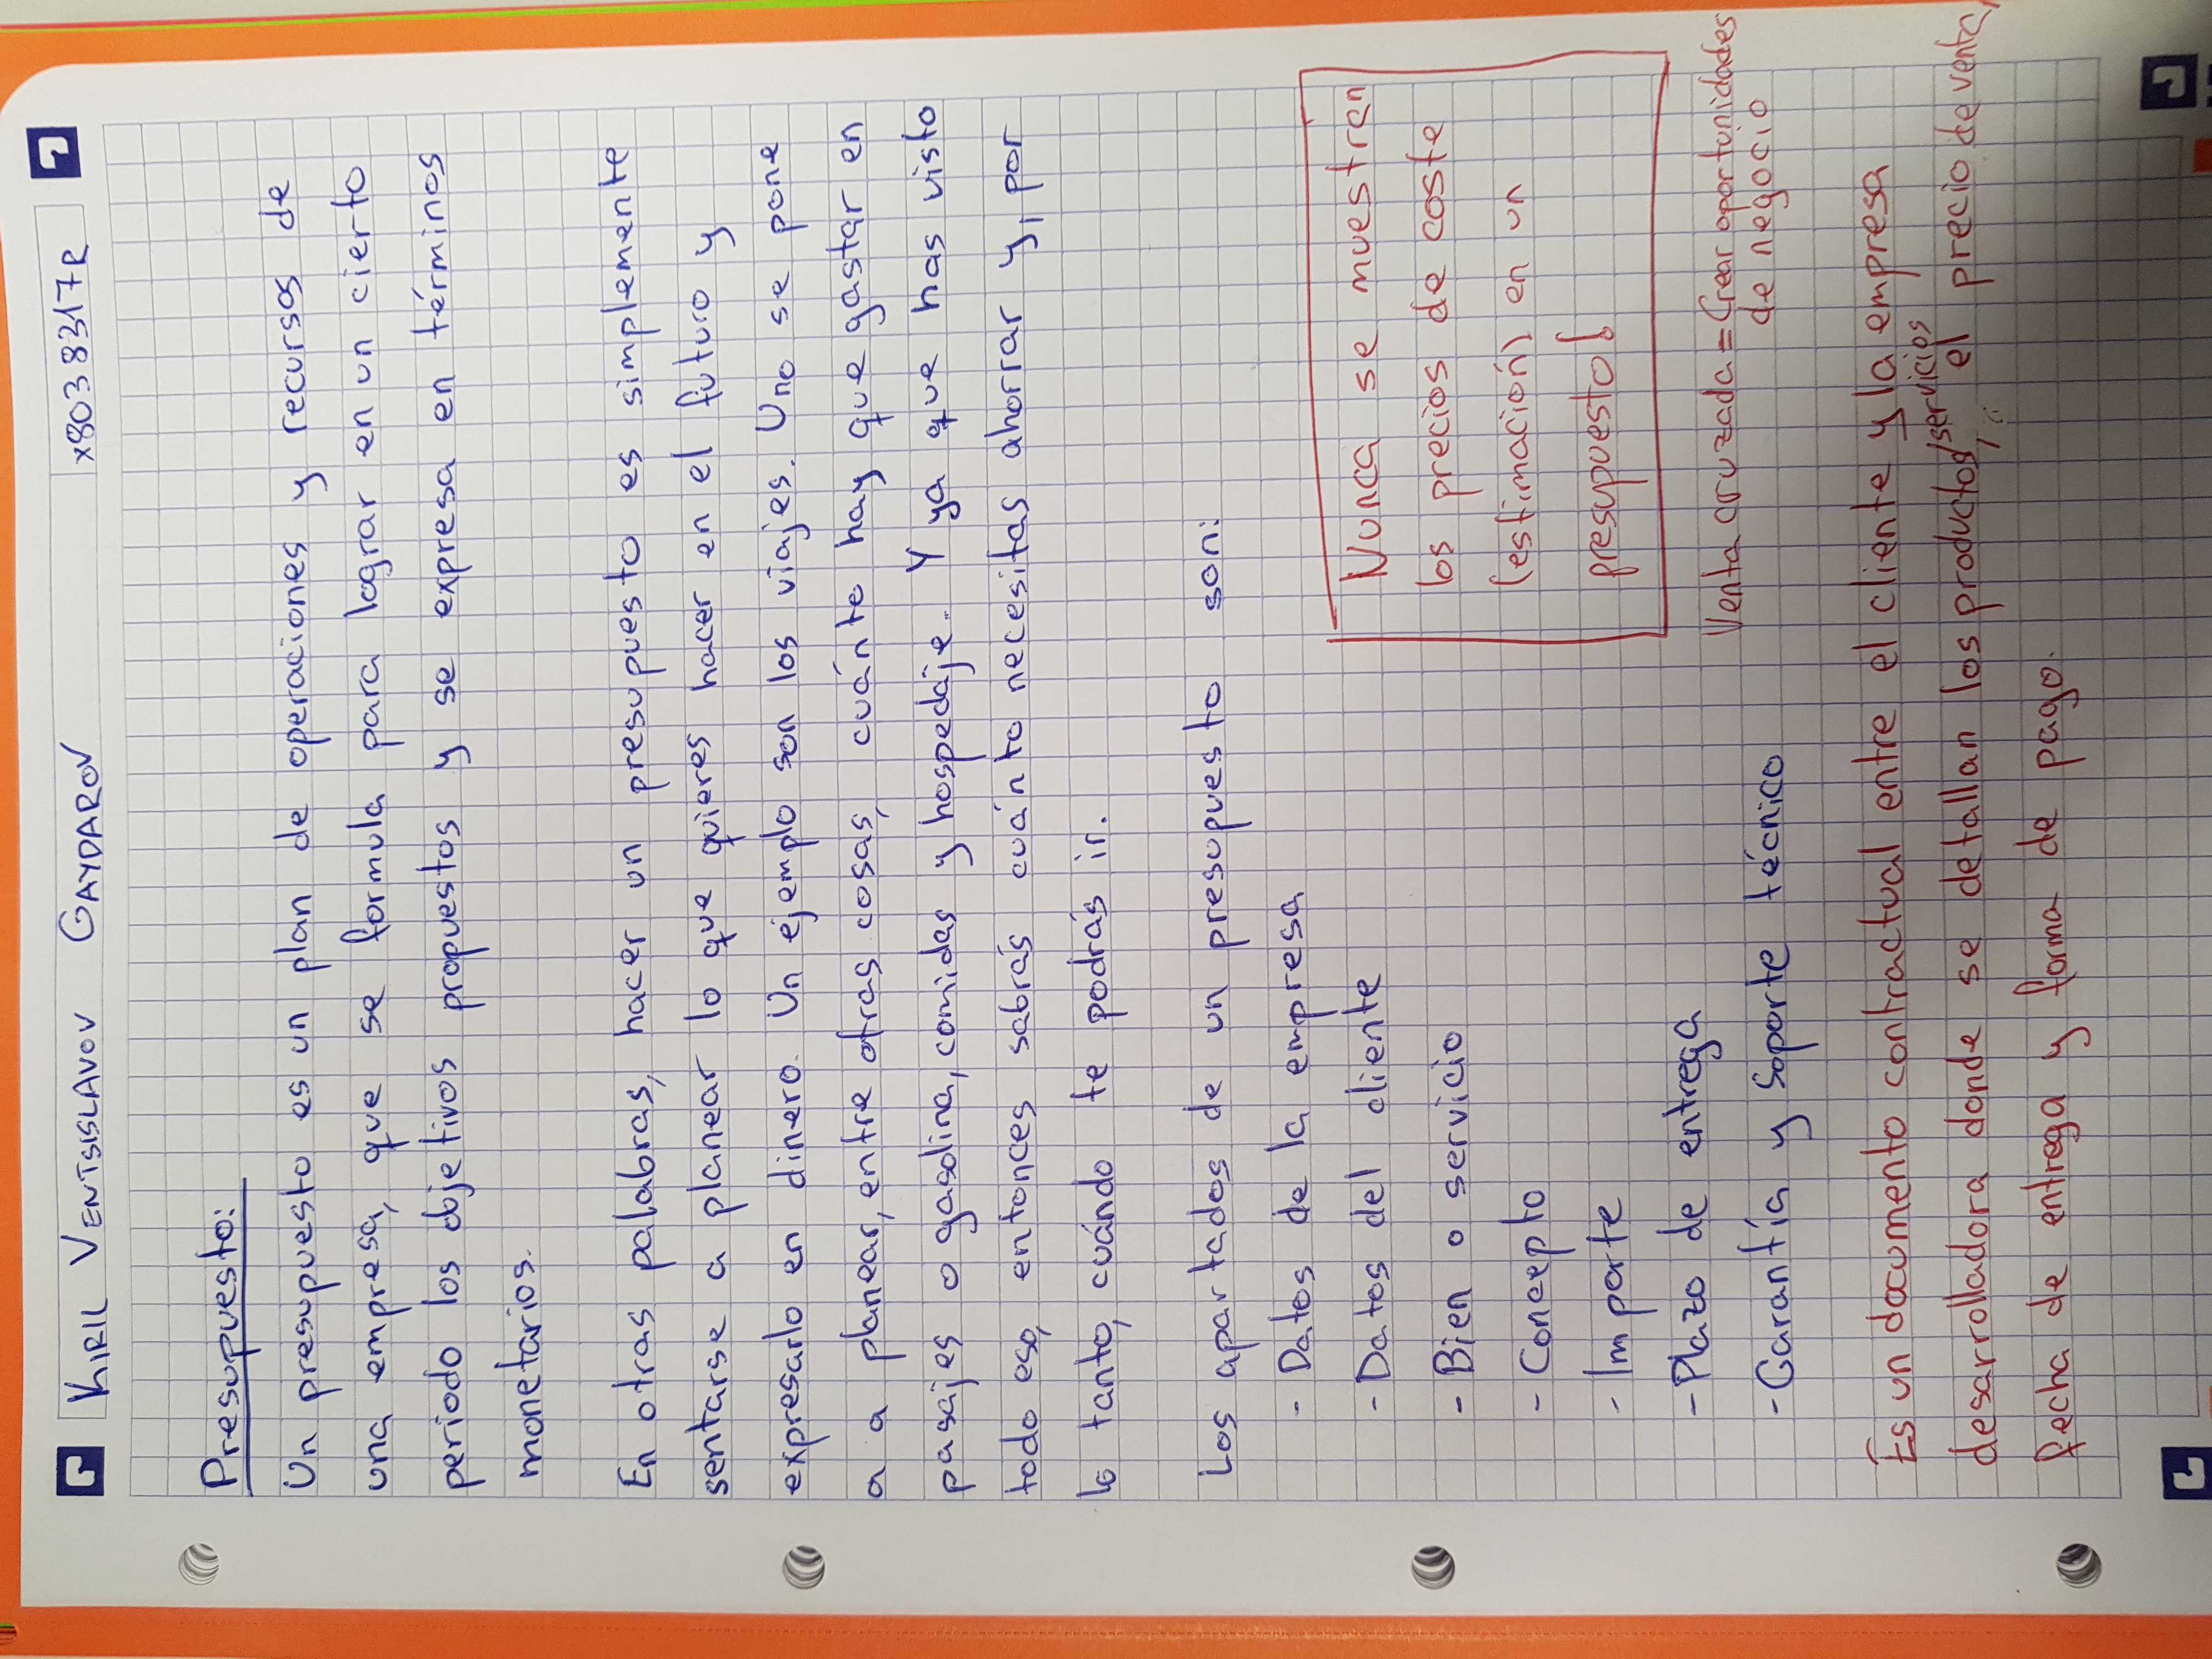 KIRIL VENTSISLAVOV GAYDAROV x8038317R
Presupuesto:
Un presupuesto es un plan de operaciones y recursos de
una empresa, que se formula para lograr en un cierto
periodo los objetivos propuestos y se expresa en términos
monetarios.
En otras palabras, hacer un presupuesto es simplemente
sentarse a planear lo que quieres hacer en el futuro y
expresarlo en dinero. Un ejemplo son los viajes. Uno se pone
a a planear, entre otras cosas, cuánto hay que gastar en
pasajes o gasolina, comidas y hospedaje. Y ya que has visto
todo eso, entonces sabrás cuánto necesitas ahorrar y, por
lo tanto, cuándo te podrás ir.
Los apartados de un presupuesto son:
- Datos de la empresa
- Datos del cliente
- Bien o servicio
- Concepto
- Importe
- Plazo de entrega
- Garantía y Soporte técnico
Nunca se muestran
los precios de coste
(estimación) en un
presupuesto!
Venta cruzada = Crear oportunidades
de negocio
Es un documento contractual entre el cliente y la empresa
desarrolladora donde se detallan los productos/servicios, el precio de venta,
fecha de entrega y forma de pago.